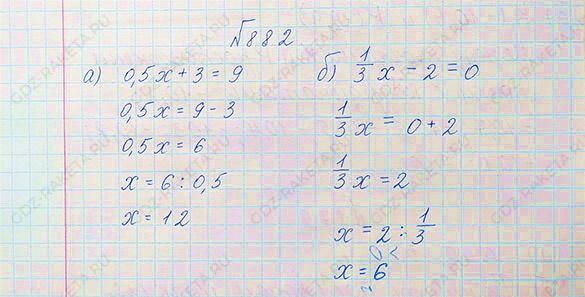 №882
а) 0,5x + 3 = 9
0,5x = 9 - 3
0,5x = 6
x = 6 : 0,5
x = 12
б) 1/3 x - 2 = 0
1/3 x = 0 + 2
1/3 x = 2
x = 2 : 1/3
x = 6
GDZ-RAKETA.RU